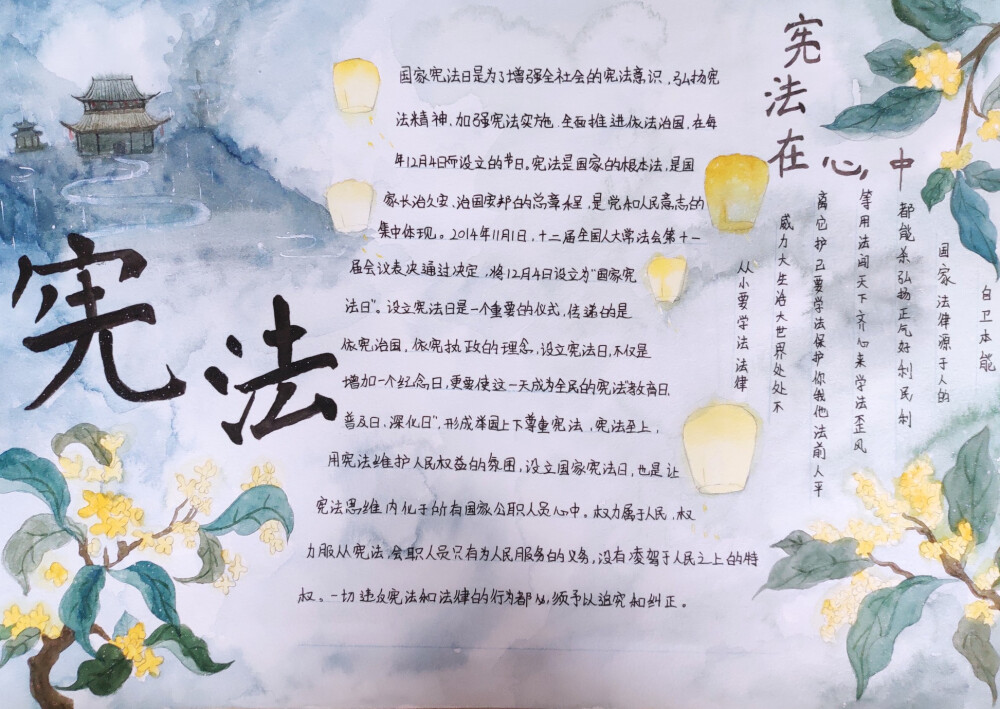 宪法
国家宪法日是为了增强全社会的宪法意识，弘扬宪
法精神，加强宪法实施，全面推进依法治国，在每
年12月4日所设立的节日。宪法是国家的根本法，是国
家长治久安、治国安邦的总章程，是党和人民意志的
集中体现。2014年11月1日，十二届全国人大常法会第十一
届会议表决通过决定，将12月4日设立为“国家宪
法日”。设立宪法日是一个重要的仪式，传递的是
依宪治国，依宪执政的理念，设立宪法日，不仅是
增加一个纪念日，更要使这一天成为全民的宪法“教育日、
普及日、深化日”，形成举国上下尊重宪法，宪法至上，
用宪法维护人民权益的氛围，设立国家宪法日，也是让
宪法思维内化于所有国家公职人员心中。权力属于人民，权
力服从宪法，会职人员只有为人民服务的义务，没有凌驾于人民之上的特
权。一切违反宪法和法律的行为都必须予以追究和纠正。
宪法在心中
从小要学法法律
威力大生活大世界处处不
离它护己要学法保护你我他法前人平
等用法闯天下齐心来学法歪风
都能杀弘扬正气好利民利
国家法律源于人的
自卫本能